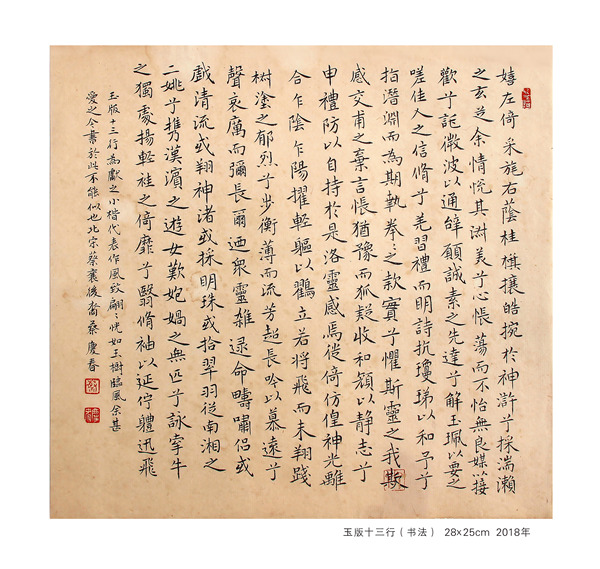 嬉左倚采旄右蔭桂旗攘皓捥於神滸兮採湍瀨
之玄芝余情悅其淑美兮心悵蕩而不怡無良媒以接
歡兮託微波以通辭願誠素之先達兮解玉珮以要之
嗟佳人之信脩兮羌習禮而明詩抗瓊珶以和予兮
指潛淵而為期執拳〻之款實兮懼斯靈之我欺
感交甫之棄言悵猶豫而狐疑收和顏以靜志兮
申禮防以自持於是洛靈感焉徙倚仿偟神光離
合乍陰乍陽擢輕軀以鶴立若將飛而未翔踐
椒塗之郁烈兮步衡薄而流芳超長吟以慕遠兮
聲哀厲而彌長爾迺眾靈雜遝命疇嘯侶或
戲清流或翔神渚或採明珠或拾翠羽從南湘之
二姚兮攜漢濱之遊女歎匏媧之無匹兮詠牽牛
之獨處揚輕袿之倚靡兮翳脩袖以延佇體迅飛
玉版十三行為獻之小楷代表作風致翩〻恍如玉樹臨風余甚
愛之今書於此不能似也北宋蔡襄後裔蔡慶春
玉版十三行（书法） 28×25cm 2018年